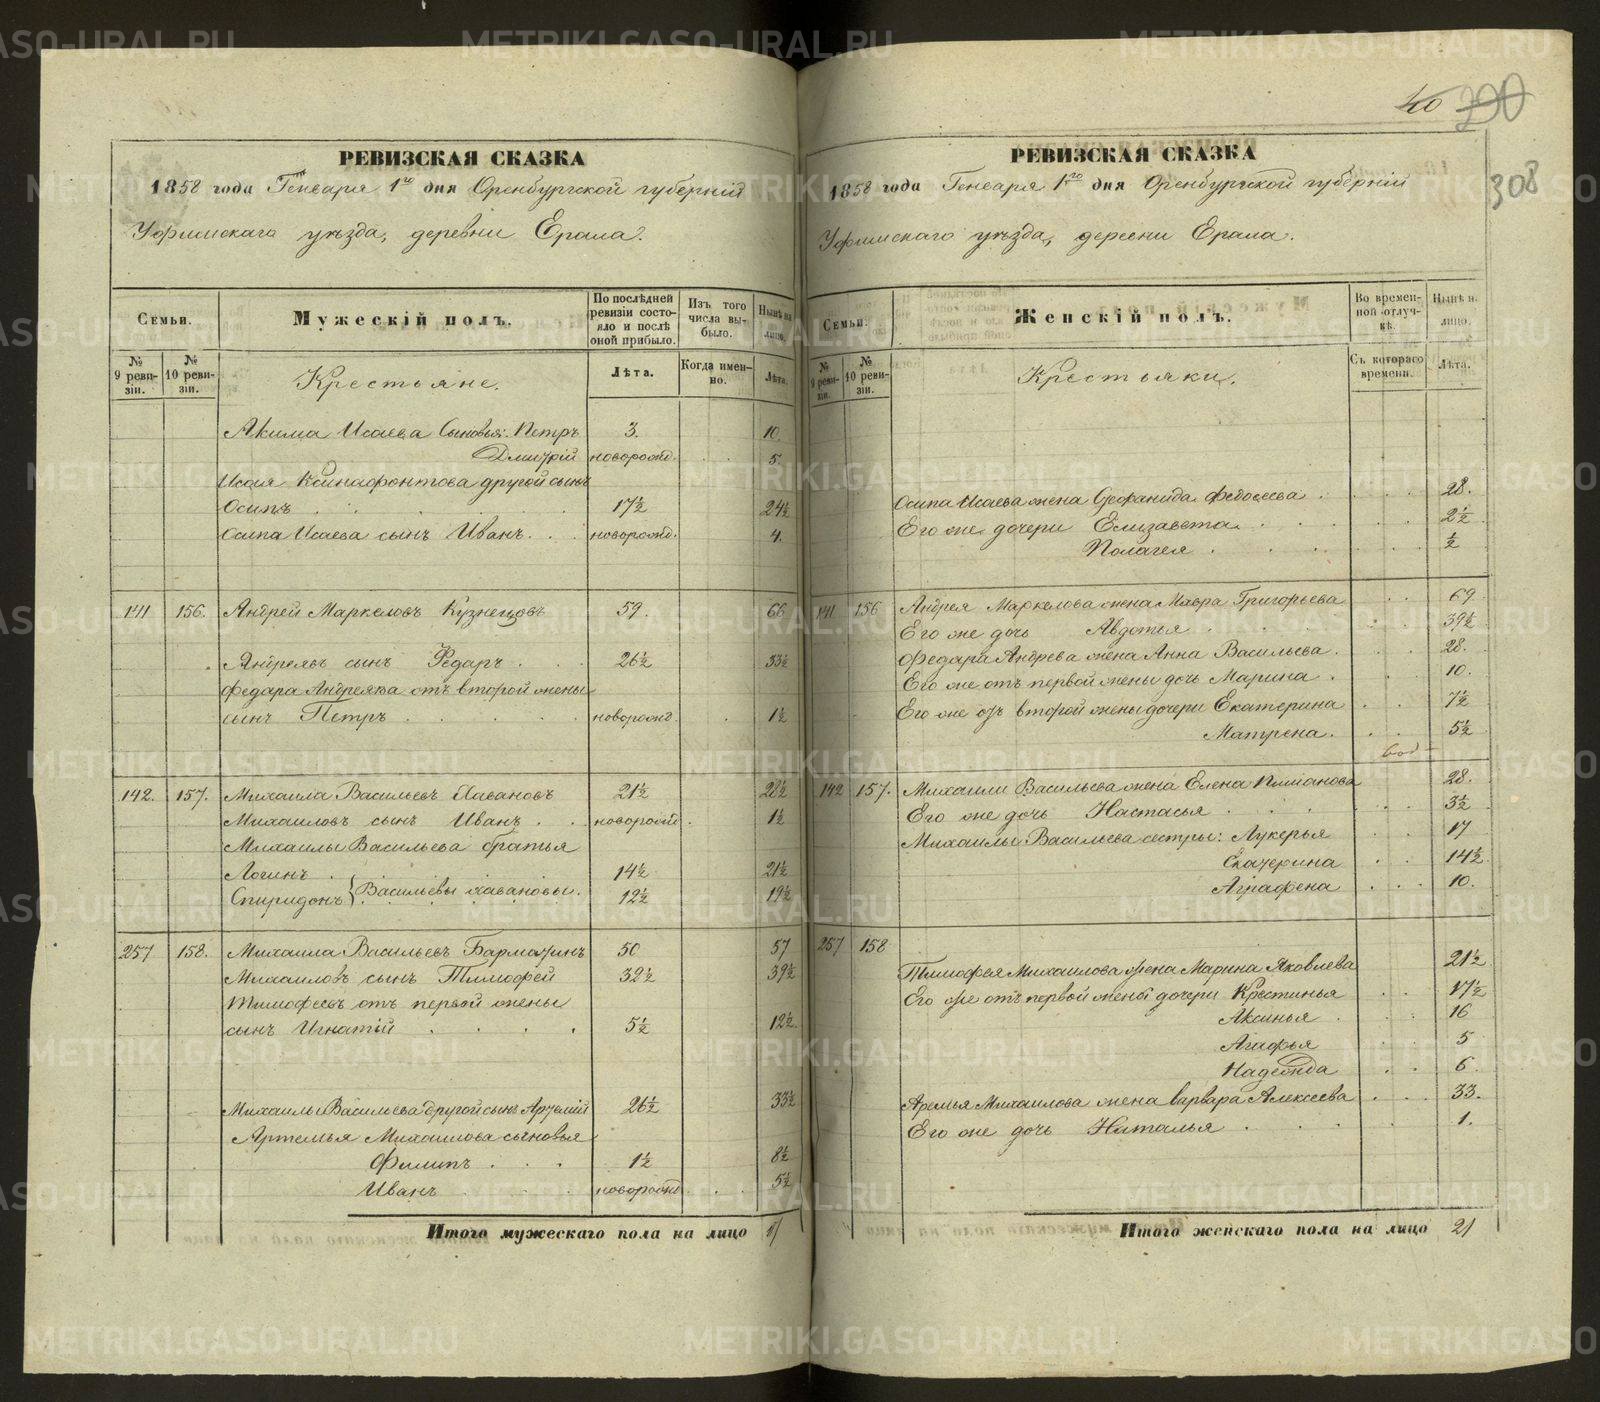 40 290
308
РЕВИЗСКАЯ СКАЗКА
1858 года Генваря 1го дня Оренбургской губерніи
Уфимскаго уѣзда, деревни Ерала.
Семьи.
Мужескій полъ.
По послѣдней ревизіи состояло и послѣ оной прибыло.
Изъ того числа выбыло.
Нынѣ на лицо.
№ 9 ревизіи.
№ 10 ревизіи.
Крестьяне.
Лѣта.
Когда именно.
Лѣта.
Акима Исаева сыновья: Петръ 3. 10
Дмитрій новорожд. 5.
Исая Ксинафонтова другой сынъ
Осипъ 17½ 24½
Осипа Исаева сынъ Иванъ новорожд. 4.
141 156. Андрей Маркеловъ Кузнецовъ 59. 66
Андреявъ сынъ Федаръ 26½ 33½
Федара Андреява отъ второй жены
сынъ Петръ новорожд. 1½
142. 157. Михаила Васильевъ Хавановъ 21½ 28½
Михаиловъ сынъ Иванъ новорожд. 1½
Михаилы Васильева братья
Логинъ 14½ 21½
Спиридонъ Васильевы Хавановы. 12½ 19½
257 158. Михаила Васильевъ 50 57
Михаиловъ сынъ Тимофей 32½ 39½
Тимофеевъ отъ первой жены
сынъ Игнатій 5½ 12½
Михаилы Васильева другой сынъ Артемій 26½ 33½
Артемья Михаилова сыновья
Филипъ 1½ 8½
Иванъ новорожд. 5½
Итого мужескаго пола на лицо
РЕВИЗСКАЯ СКАЗКА
1858 года Генваря 1го дня Оренбургской губерніи
Уфимскаго уѣзда, деревни Ерала.
Семьи.
Женскій полъ.
Во временной отлучкѣ.
Нынѣ на лицо.
№ 9 ревизіи.
№ 10 ревизіи.
Крестьянки.
Съ котораго времени.
Лѣта.
Осипа Исаева жена Стефанида Федосеева 28.
Его же дочери Елизавета 2½
Полагея ½
141 156 Андрея Маркелова жена Мавра Григорьева 69
Его же дочь Авдотья 39½
Федара Андрева жена Анна Васильева 28.
Его же отъ первой жены дочь Марина 10.
Его же отъ второй жены дочери Екатерина 7½
Матрена. 5½
142 157. Михаилы Васильева жена Елена 28.
Его же дочь Настасья 3½
Михаилы Васильева сестры: Лукерья 17
Екатерина 14½
Аграфена 10.
257 158
Тимофья Михаилова жена Марина Яковлева 21½
Его же отъ первой жены дочери Крестинья 17½
Аксинья 16
Агафья 5
Надежда 6
Михаилова жена Варвара Алексеева 33.
Его же дочь Наталья 1.
Итого женскаго пола на лицо 21
METRIKI.GASO-URAL.RU